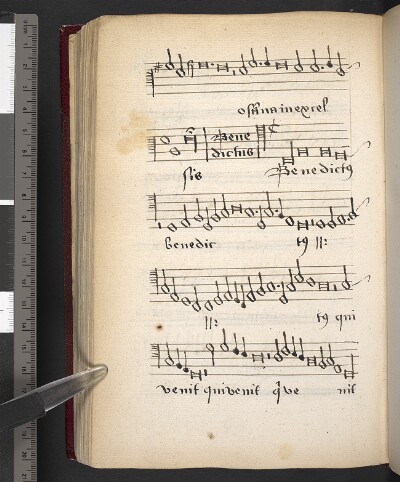 osanna in excel
Bene
dictus
sis Benedictus
benedic tus ij
ij tus qui
venit qui venit q ve nit